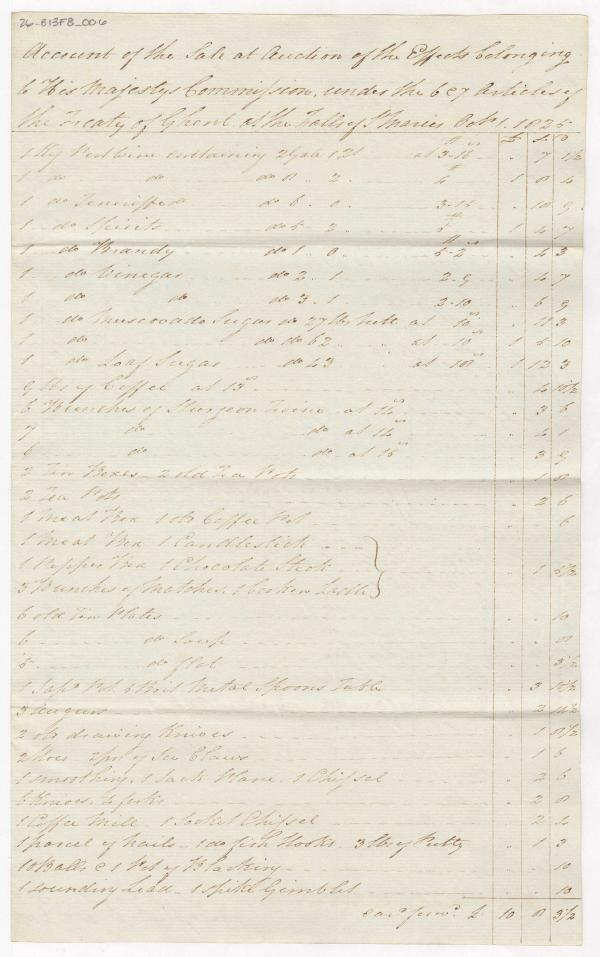 26-B13FB_006
Account of the Sale at Auction of the Effects belonging
to His Majestys Commission, under the 6 & 7 Articles of
the Treaty of Ghent at the Falls of St Maries Octr 1. 1825
£ S D
1 Keg Port Wine containing 2 Galls 1 Qt at 3-16 . 7 1½
1 do do do 2 1 8 4
1 do Teneriffe do 6 . 0 . 10 9
1 do Spirits do 5 . 2 1 4 7
1 do Brandy do 1 . 0 . 4 3
1 do Vinegar do 2 . 1 2-9 . 4 7
1 do do do 3 . 1 2-10 . 6 9
1 do Muscovado Sugar do 27 lbs Nett at 10 . 11 3
1 do do do 62 at 10 1 5 10
1 do Loaf Sugar do 43 at 18 1 12 3
9 lbs of Coffee at 13 . 4 10½
6 Bunches of Sturgeon Twine at 14 . 3 6
7 do do at 14 . 4 1
6 do do at 15 . 3 9
2 Tin Boxes - 2 old Tea Pots . 1 8
2 Tea Pots . 2 6
1 Meat Box 1 do Coffee Pot . . 6
1 Meat Box 1 Candlestick
1 Pepper Box 1 Chocolate Stick . 1 5½
3 Bunches of Matches. 1 broken Ladle
6 old Tin Plates . . 10
6 do Soup . . 8
5 do flat . . 3½
1 Japd Pot. 6 Brit Metal Spoons Table . 3 1½
3 Augurs . 2 11½
2 old drawing Knives . 1 8½
2 Axes 2 pr of Ice Claws . 1 6
1 smoothing. 1 Jack Plane. 1 Chissel . 2 6
6 Knives. 4 forks . 2 8
1 Coffee Mill 1 Socket Chissel . 2 4
1 parcel of nails - 1 do fish Hooks. 3 lbs of Putty . 1 3
10 Balls & 1 Pot of Blacking . . 10
1 sounding Lead - 1 Spike Gimblet . . 10
Card forwd £ 10 8 3½